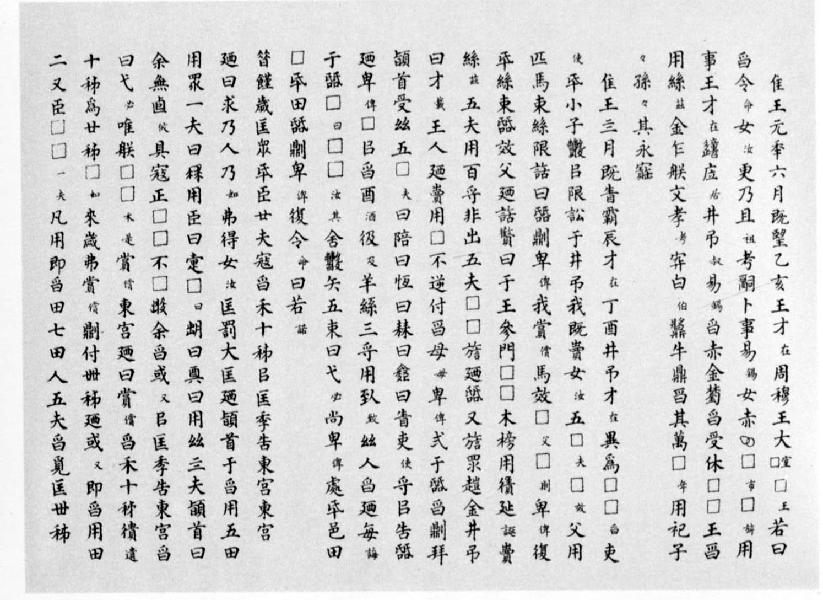 隹王元年六月既朢乙亥王才在周穆王大□室□王若曰
曶令命女汝更乃且祖考𤔲卜事易錫女赤□市□旂用
事王才在应居井弔叔易錫曶赤金曶受休□□王曶
用絲茲金乍朕文孝考宄白伯牛鼎曶其萬□年用祀子
々孫々其永寶
隹王三月既眚霸辰才在丁酉井弔才在異爲□□曶吏
使氒小子㠯限訟于井弔我既賣女汝五□夫□效父用
匹馬束絲限誥曰𧶜則卑俾我賞償馬效□父□則卑俾復
氒絲束𧶜效父廼誥曰于王參門□□木榜用徵延誕賣
絲茲五夫用百寽非出五夫□□旂廼𧶜又旂眾趞金井弔
曰才裁王人廼賣用□不逆付曶母毋卑俾弍于𧶜曶則拜
𩒨首受絲五□夫曰陪曰恆曰䅘曰龠曰眚吏使寽㠯告𧶜
廼卑俾□㠯曶酉酒彶及羊絲三寽用𦤶致絲人曶廼每誨
于𧶜□曰□□汝其舍矢五束曰弋必尚卑俾處氒邑田
□氒田𧶜則卑俾復令命曰若諾
昔饉歲匡眾氒臣廿夫寇曶禾十秭㠯匡季告東宮東宮
廼曰求乃人乃如弗得女汝匡罰大匡廼𩒨首于曶用五田
用眾一夫曰用臣曰疐□曰朏曰奠曰用絲三夫𩒨首曰
余無卣攸具寇正□□不□余曶或又㠯匡季告東宮曶
曰弋必唯朕□□禾是賞償東宮廼曰賞償曶禾十秭遺
十秭爲廿秭□如來歲弗賞償則付卌秭廼或又即曶用田
二又臣□□一夫凡用即曶田七田人五夫曶覓匡卅秭